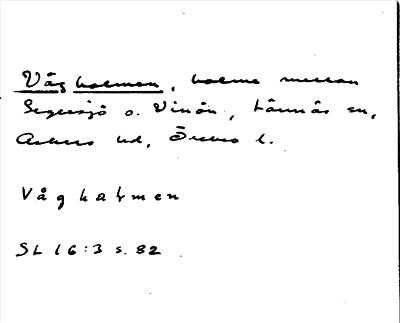 Vågholmen, holme mellan
Segersjö o. Vinön, Lännäs sn,
Askers hd, Örebro l.
Vågholmen
SL 16:3 s. 82